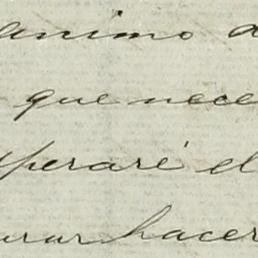 animo a
que nece
speraré el
urar hacer